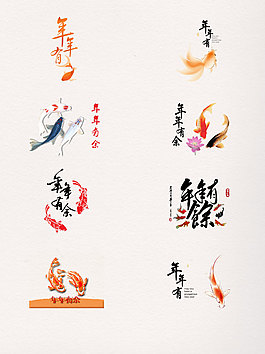 年年有
年年有
年年有余
年年有余
年年有余
年年有餘
年年有余
年年有